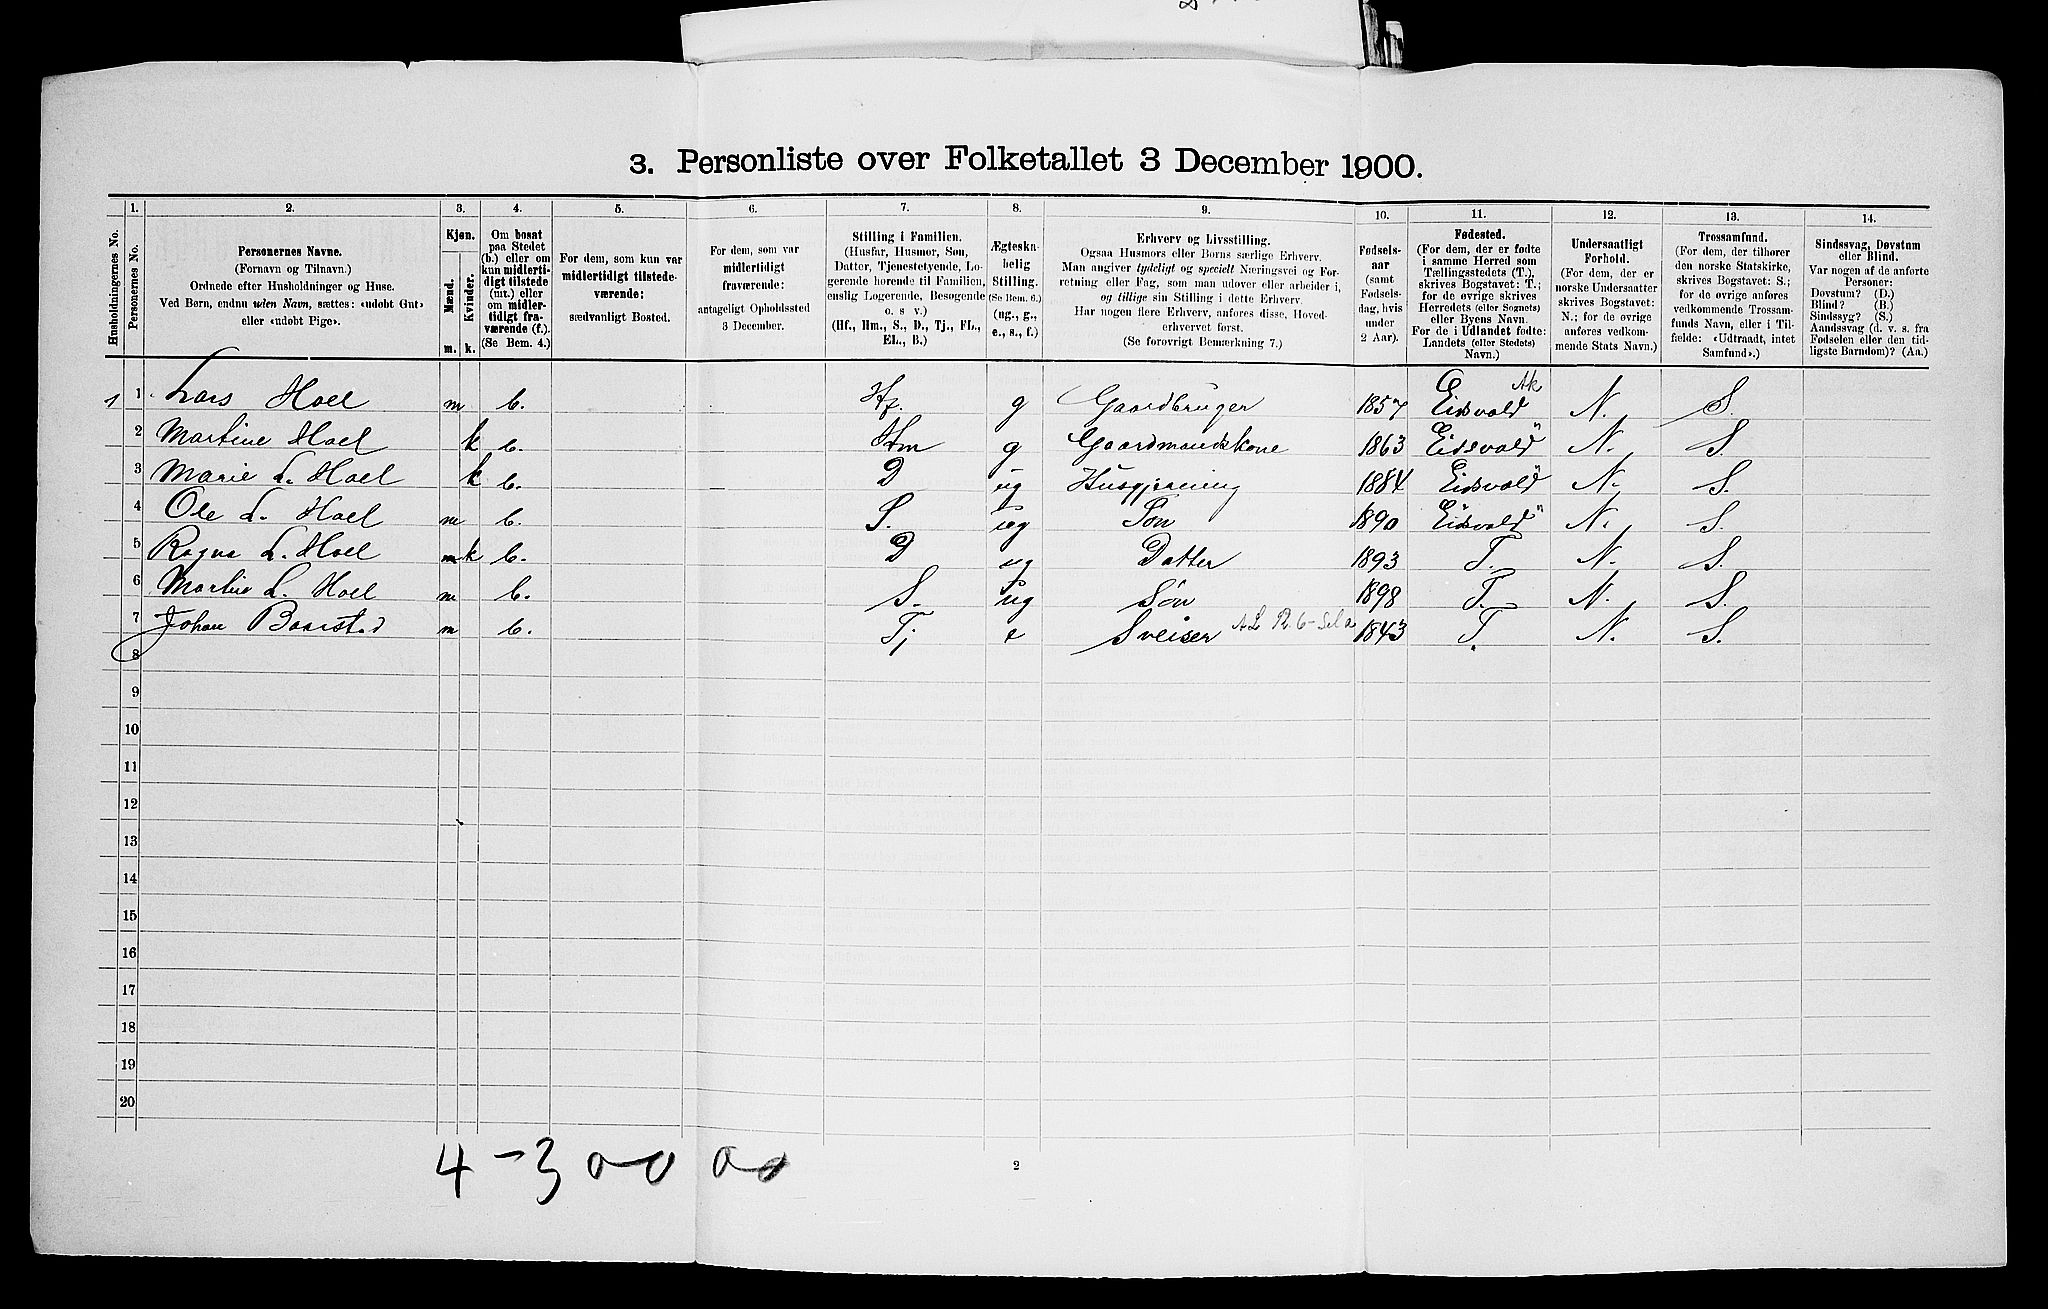 3. Personliste over Folketallet 3 December 1900.
1. 2. 3. 4. 5. 6. 7. 8. 9. 10. 11. 12. 13. 14.
Husholdningernes No.
Personernes No.
Personernes Navne.
(Fornavn og Tilnavn.)
Ordnede efter Husholdninger og Huse.
Ved Børn, endnu uden Navn, sættes: «udøbt Gut»
eller «udøbt Pige».
Kjøn.
Mænd.
Kvinder.
m. k.
Om bosat
paa Stedet
(b.) eller om
kun midlerti-
digt tilstede
(mt.) eller
om midler-
tidigt fra-
værende (f.).
(Se Bem. 4.)
For dem, som kun var
midlertidigt tilstede-
værende:
sædvanligt Bosted.
For dem, som var
midlertidigt
fraværende:
antageligt Opholdssted
3 December.
Stilling i Familien.
(Husfar, Husmor, Søn,
Datter, Tjenestetyende, Lo-
gerende hørende til Familien,
enslig Logerende, Besøgende
o. s. v.)
(Hf., Hm., S., D., Tj., FL.,
EL., B.)
Ægteska-
belig
Stilling.
(Se Bem. 6.)
(ug., g.,
e., s., f.)
Erhverv og Livsstilling.
Ogsaa Husmors eller Børns særlige Erhverv.
Man angiver tydeligt og specielt Næringsvei og For-
retning eller Fag, som man udover eller arbeider i,
og tillige sin Stilling i dette Erhverv.
Har nogen flere Erhverv, anføres disse, Hoved-
erhvervet først.
(Se forøvrigt Bemærkning 7.)
Fødsels-
aar
(samt
Fødsels-
dag, hvis
under
2 Aar).
Fødested.
(For dem, der er fødte
i samme Herred som
Tællingsstedets (T.),
skrives Bogstavet: T.;
for de øvrige skrives
Herredets (eller Sognets)
eller Byens Navn.
For de i Udlandet fødte:
Landets (eller Stedets)
Navn.)
Undersaatligt
Forhold.
(For dem, der er
norske Undersaatter
skrives Bogstavet:
N.; for de øvrige
anføres vedkom-
mende Stats Navn.)
Trossamfund.
(For dem, der tilhører
den norske Statskirke,
skrives Bogstavet: S.;
for de øvrige anføres
vedkommende Trossam-
funds Navn, eller i Til-
fælde: «Udtraadt, intet
Samfund».)
Sindssvag, Døvstum
eller Blind.
Var nogen af de anførte
Personer:
Døvstum? (D.)
Blind? (B.)
Sindssyg? (S.)
Aandssvag (d. v. s. fra
Fødselen eller den tid-
ligste Barndom)? (Aa.)
Ak
1 1 Lars Hoel m b. Hf. g Gaardbruger 1857 Eidsvold N. S.
2 Martine Hoel k b. Hm g Gaardmandskone 1863 Eidsvold " N. S.
3 Marie L. Hoel k b. D ug Husgjærning 1884 Eidsvold " N. S.
4 Ole L. Hoel m b. S. ug Søn 1890 Eidsvold " N. S.
5 Ragna L. Hoel m k b. D ug Datter 1893 T. N. S.
6 Martin L. Hoel m b. S. ug Søn 1898 T. N. S.
7 Johan Baarstad m b. Tj e Sveiser 1843 T. N. S.
8
9
10
11
12
13
14
15
16
17
18
19
20
4 - 3 00 00
2